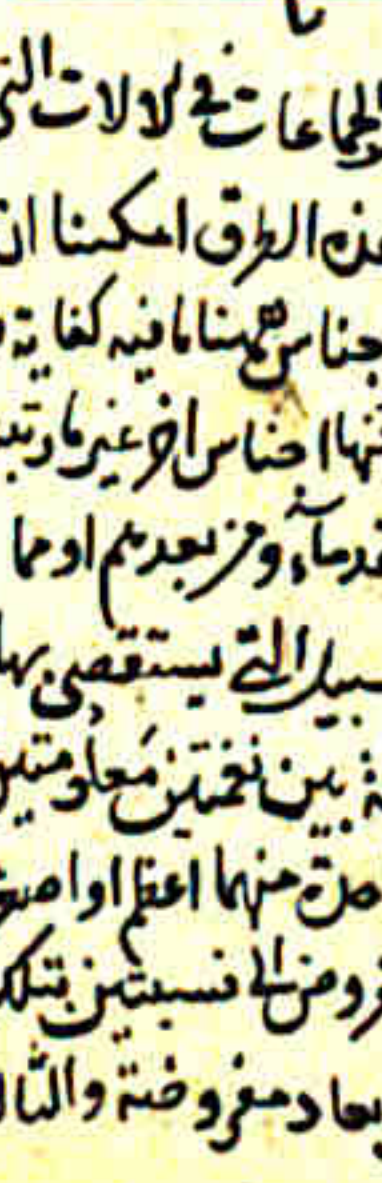 والجماعات في الالات التي
هذه الطرق امكننا ان
جناس ههنا ما فيه كفاية
منها اجناس اخر غير ما رتبـ
قدمآء ومن بعدهم او مما
سبيل التي يستقصى بها
ـة بين نغمتين معلومتين
ـحدة منهما اعظم او اصغر
ـروض الى نسبتين بتلك
بعاد مفروضة والثال